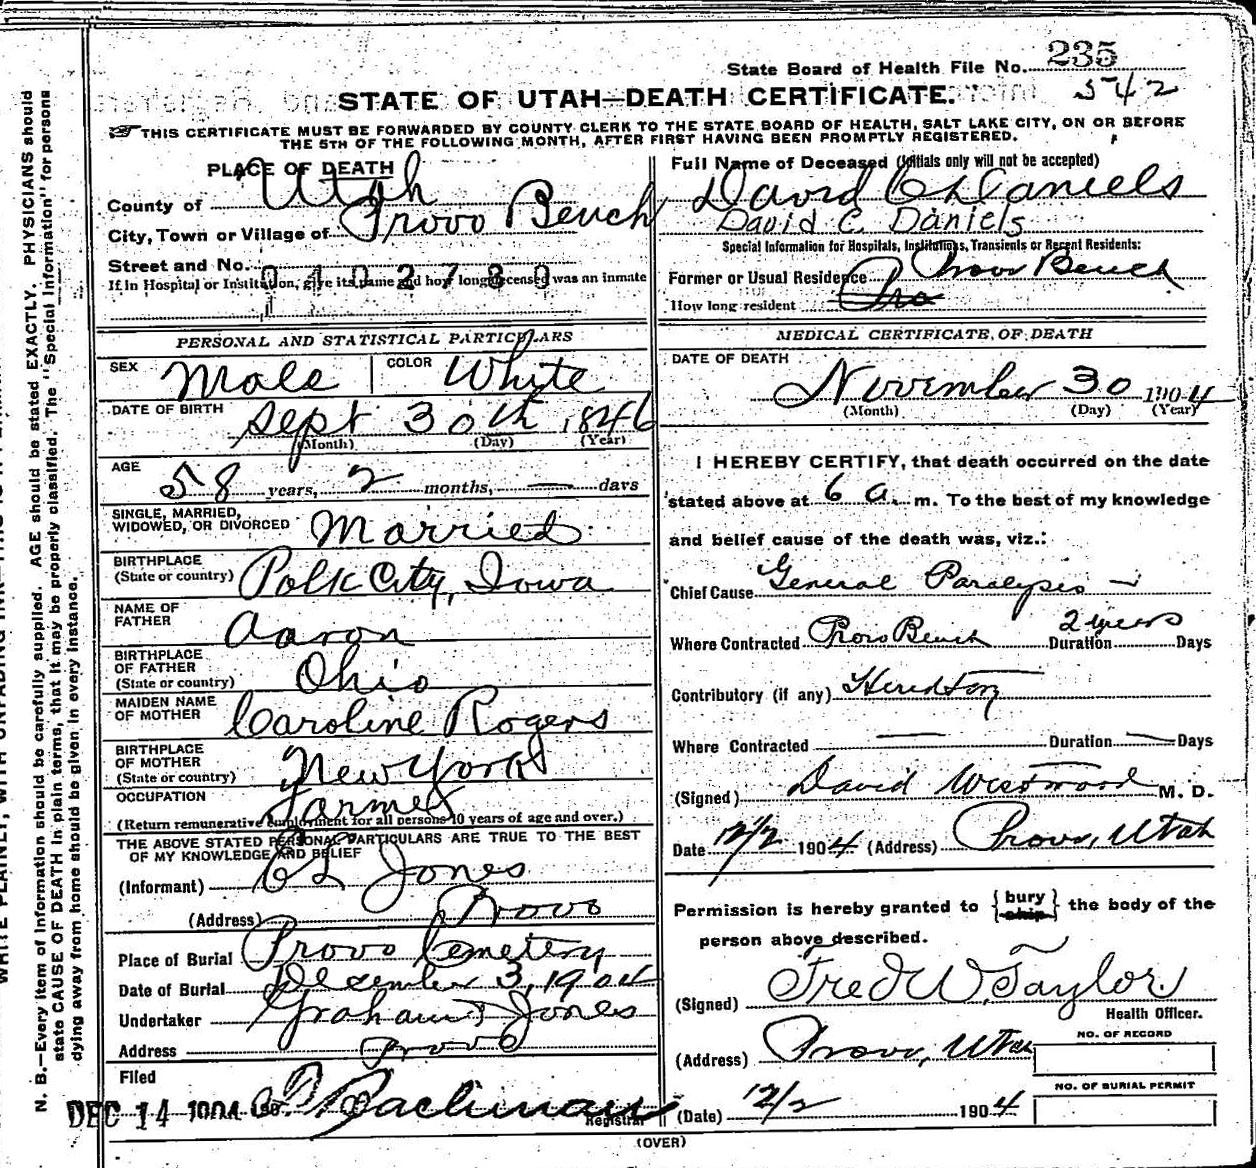 State Board of Health File No. 235
542
STATE OF UTAH—DEATH CERTIFICATE.
THIS CERTIFICATE MUST BE FORWARDED BY COUNTY CLERK TO THE STATE BOARD OF HEALTH, SALT LAKE CITY, ON OR BEFORE
THE 5TH OF THE FOLLOWING MONTH, AFTER FIRST HAVING BEEN PROMPTLY REGISTERED.
PLACE OF DEATH
County of Utah
City, Town or Village of Provo Bench
Street and No.
0402780
If in Hospital or Institution, give its name and how long deceased was an inmate
PERSONAL AND STATISTICAL PARTICULARS
SEX Male COLOR White
DATE OF BIRTH Sept 30th 1846
(Month) (Day) (Year)
AGE 58 years, 2 months, — days
SINGLE, MARRIED,
WIDOWED, OR DIVORCED Married
BIRTHPLACE
(State or country) Polk City, Iowa
NAME OF
FATHER Aaron
BIRTHPLACE
OF FATHER
(State or country) Ohio
MAIDEN NAME
OF MOTHER Caroline Rogers
BIRTHPLACE
OF MOTHER
(State or country) New York
OCCUPATION Farmer
(Return remunerative employment for all persons 10 years of age and over.)
THE ABOVE STATED PERSONAL PARTICULARS ARE TRUE TO THE BEST
OF MY KNOWLEDGE AND BELIEF
(Informant) Jones
(Address) Provo
Place of Burial Provo Cemetery
Date of Burial December 3, 1904
Undertaker Graham & Jones
Address Provo
Filed
DEC 14 1904 190 Bachman
Registrar
(OVER)
Full Name of Deceased (Initials only will not be accepted)
David Daniels
David C. Daniels
Special Information for Hospitals, Institutions, Transients or Recent Residents:
Former or Usual Residence Provo Bench
How long resident Pro
MEDICAL CERTIFICATE OF DEATH
DATE OF DEATH
November 30 1904
(Month) (Day) (Year)
I HEREBY CERTIFY, that death occurred on the date
stated above at 6 a. m. To the best of my knowledge
and belief cause of the death was, viz.:
Chief Cause General Paralysis
Where Contracted Provo Bench Duration 2 years Days
Contributory (if any)
Where Contracted — Duration — Days
(Signed) David Westwood M. D.
Date 12/2 1904 (Address) Provo, Utah
Permission is hereby granted to {bury ship} the body of the
person above described.
(Signed) Fred W. Taylor
Health Officer.
(Address) Provo, Utah
NO. OF RECORD
NO. OF BURIAL PERMIT
(Date) 12/2 1904
N. B.—Every item of information should be carefully supplied. AGE should be stated EXACTLY. PHYSICIANS should
state CAUSE OF DEATH in plain terms, that it may be properly classified. The "Special Information" for persons
dying away from home should be given in every instance.
WRITE PLAINLY, WITH UNFADING INK